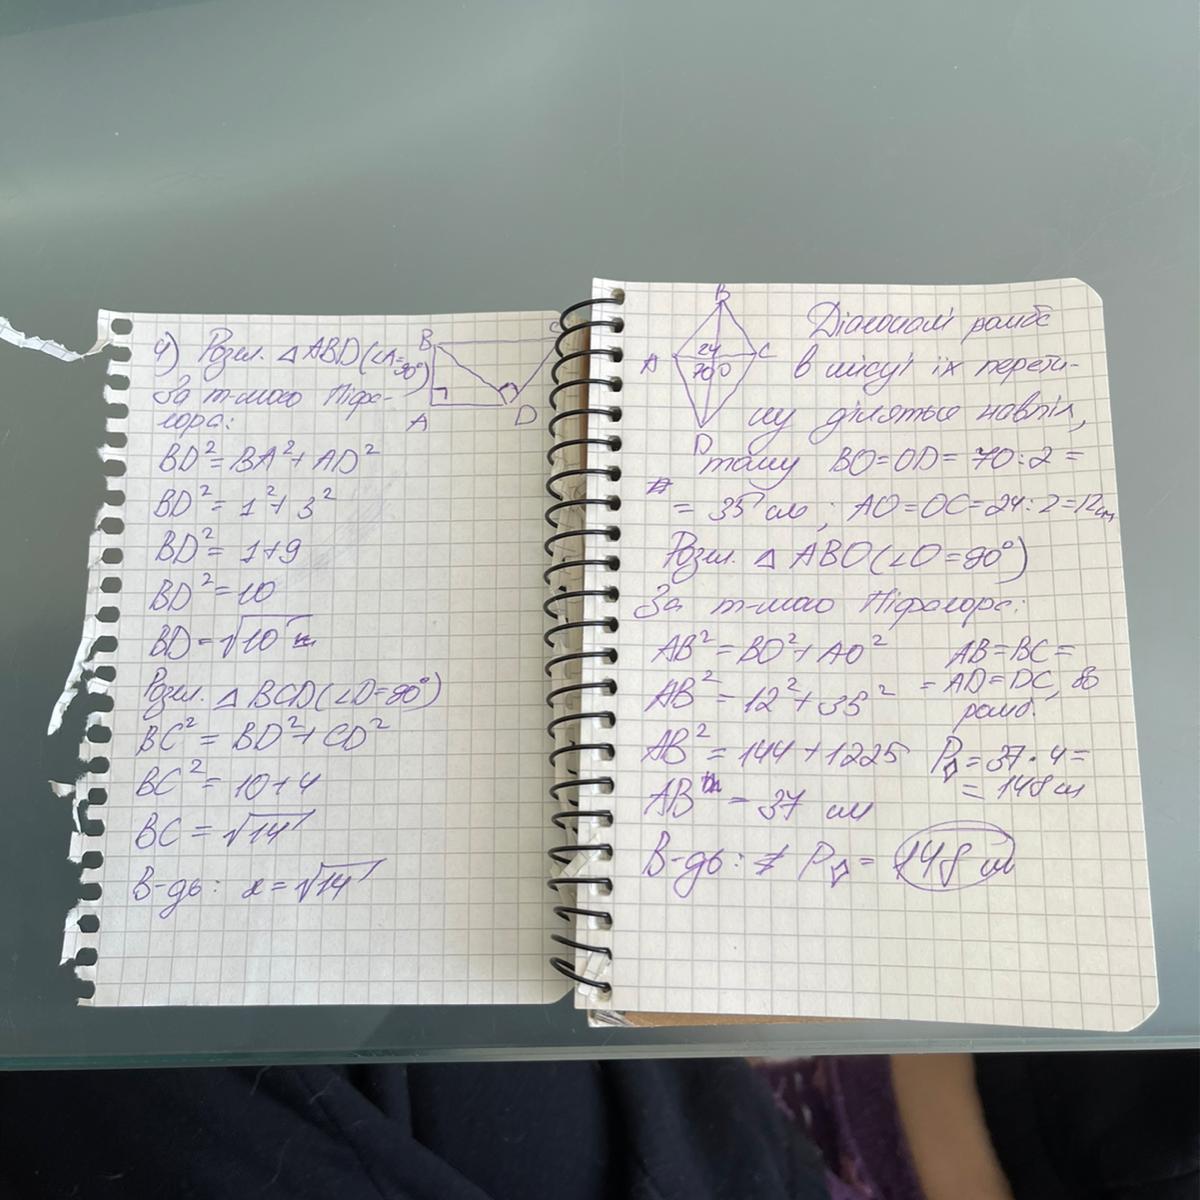 4) Розгл. △ABD(∠A=90°)
За т-мою Піфа-
гора:
B
C
A
D
BD²=BA²+AD²
BD²=1²+3²
BD²=1+9
BD²=10
BD=√10
Розгл. △BCD(∠D=90°)
BC²=BD²+CD²
BC²=10+4
BC=√14
В-дь: x=√14
B
A
24
C
70 O
D
Діагоналі ромба
в місці їх перети-
ну діляться навпіл,
тому BO=OD=70:2=
=35 см; AO=OC=24:2=12см
Розгл. △ABO(∠O=90°)
За т-мою Піфагора:
AB²=BO²+AO²
AB²=12²+35²
AB²=144+1225
AB=37 см
AB=BC=
=AD=DC, бо
ромб.
P◊=37·4=
=148см
В-дь: P◊=148 см